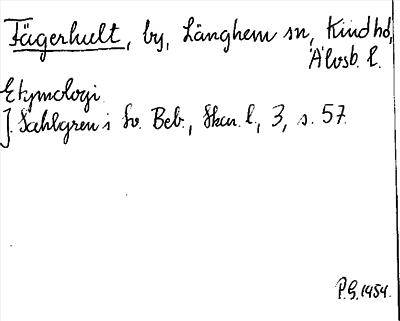 Fägerhult, by, Länghem sn, Kind hd,
Älvsb. l.
Etymologi.
J. Sahlgren i Sv. Beb., Skar. l., 3, s. 57.
P.G. 1954.